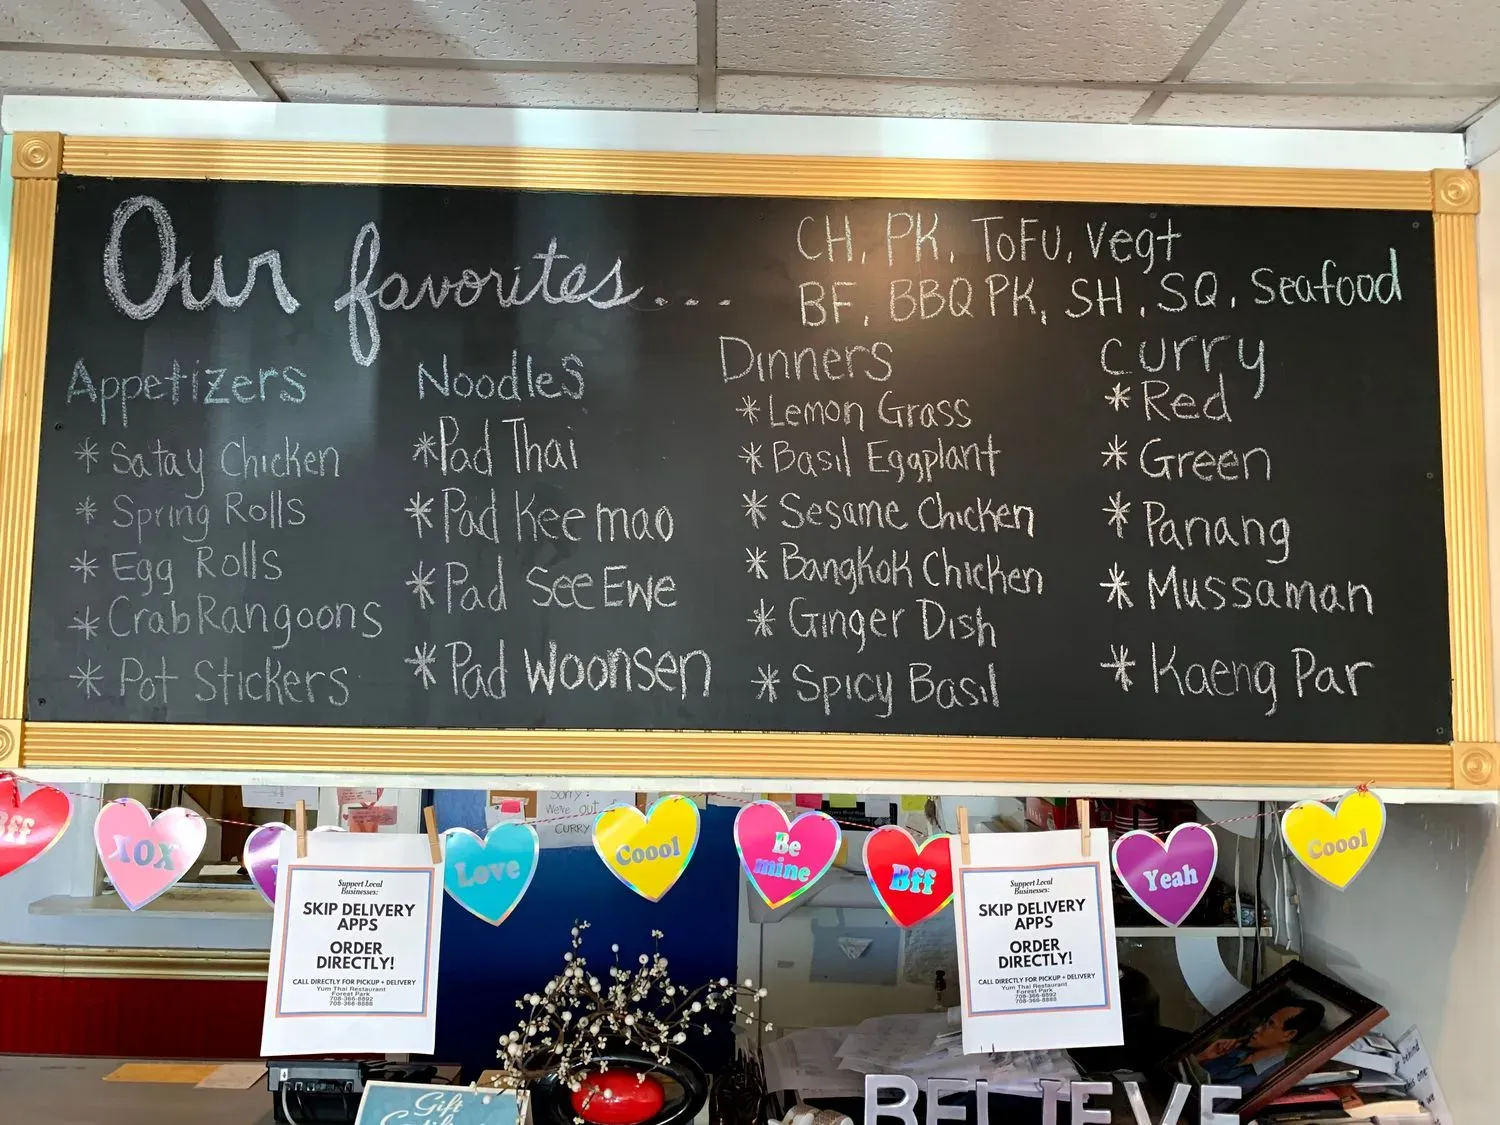 Our favorites...
CH, PK, ToFu, Vegt
BF, BBQ PK, SH, SQ, Seafood
Appetizers
* Satay Chicken
* Spring Rolls
* Egg Rolls
* Crab Rangoons
* Pot Stickers
Noodles
* Pad Thai
* Pad Kee mao
* Pad See Ewe
* Pad Woonsen
Dinners
* Lemon Grass
* Basil Eggplant
* Sesame Chicken
* Bangkok Chicken
* Ginger Dish
* Spicy Basil
Curry
* Red
* Green
* Panang
* Mussaman
* Kaeng Par
Sorry
We're out
CURRY
Bff
XOX
Love
Coool
Be
mine
Bff
Yeah
Coool
Support Local
Businesses:
SKIP DELIVERY
APPS
ORDER
DIRECTLY!
CALL DIRECTLY FOR PICKUP + DELIVERY
Yum Thai Restaurant
Forest Park
708-366-8892
708-366-8888
Support Local
Businesses:
SKIP DELIVERY
APPS
ORDER
DIRECTLY!
CALL DIRECTLY FOR PICKUP + DELIVERY
Yum Thai Restaurant
Forest Park
708-366-8892
708-366-8888
Gift
BELIEVE
behind